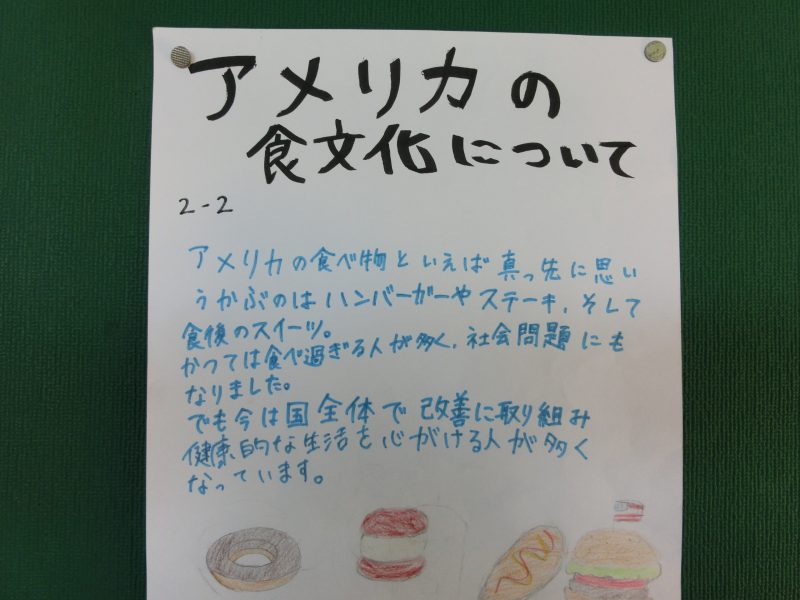 アメリカの
食文化について
2-2
アメリカの食べ物といえば真っ先に思い
うかぶのはハンバーガーやステーキ、そして
食後のスイーツ。
かつては食べ過ぎる人が多く、社会問題にも
なりました。
でも今は国全体で改善に取り組み
健康的な生活を心がける人が多く
なっています。